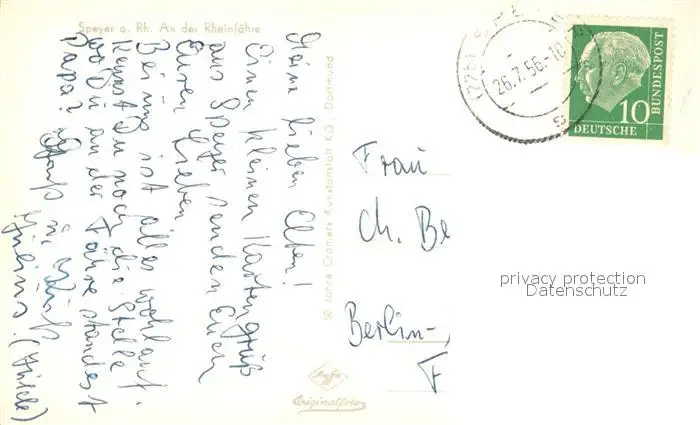 Speyer a. Rh. An der Rheinfähre
Meine lieben Eltern!
Einen kleinen Kartengruß
aus Speyer senden Euch
Euren Lieben
Bei uns ist alles wohlauf.
Kennst Du noch die Stelle
wo Du an der Fähre standest
Papa? Gruß u. Kuß
50 Jahre Cramers Kunstanstalt KG., Dortmund
Agfa
Originalfoto
26.7.56.-10
DEUTSCHE
BUNDESPOST
10
Frau
Ch. Be
Berlin-,
F
privacy protection
Datenschutz